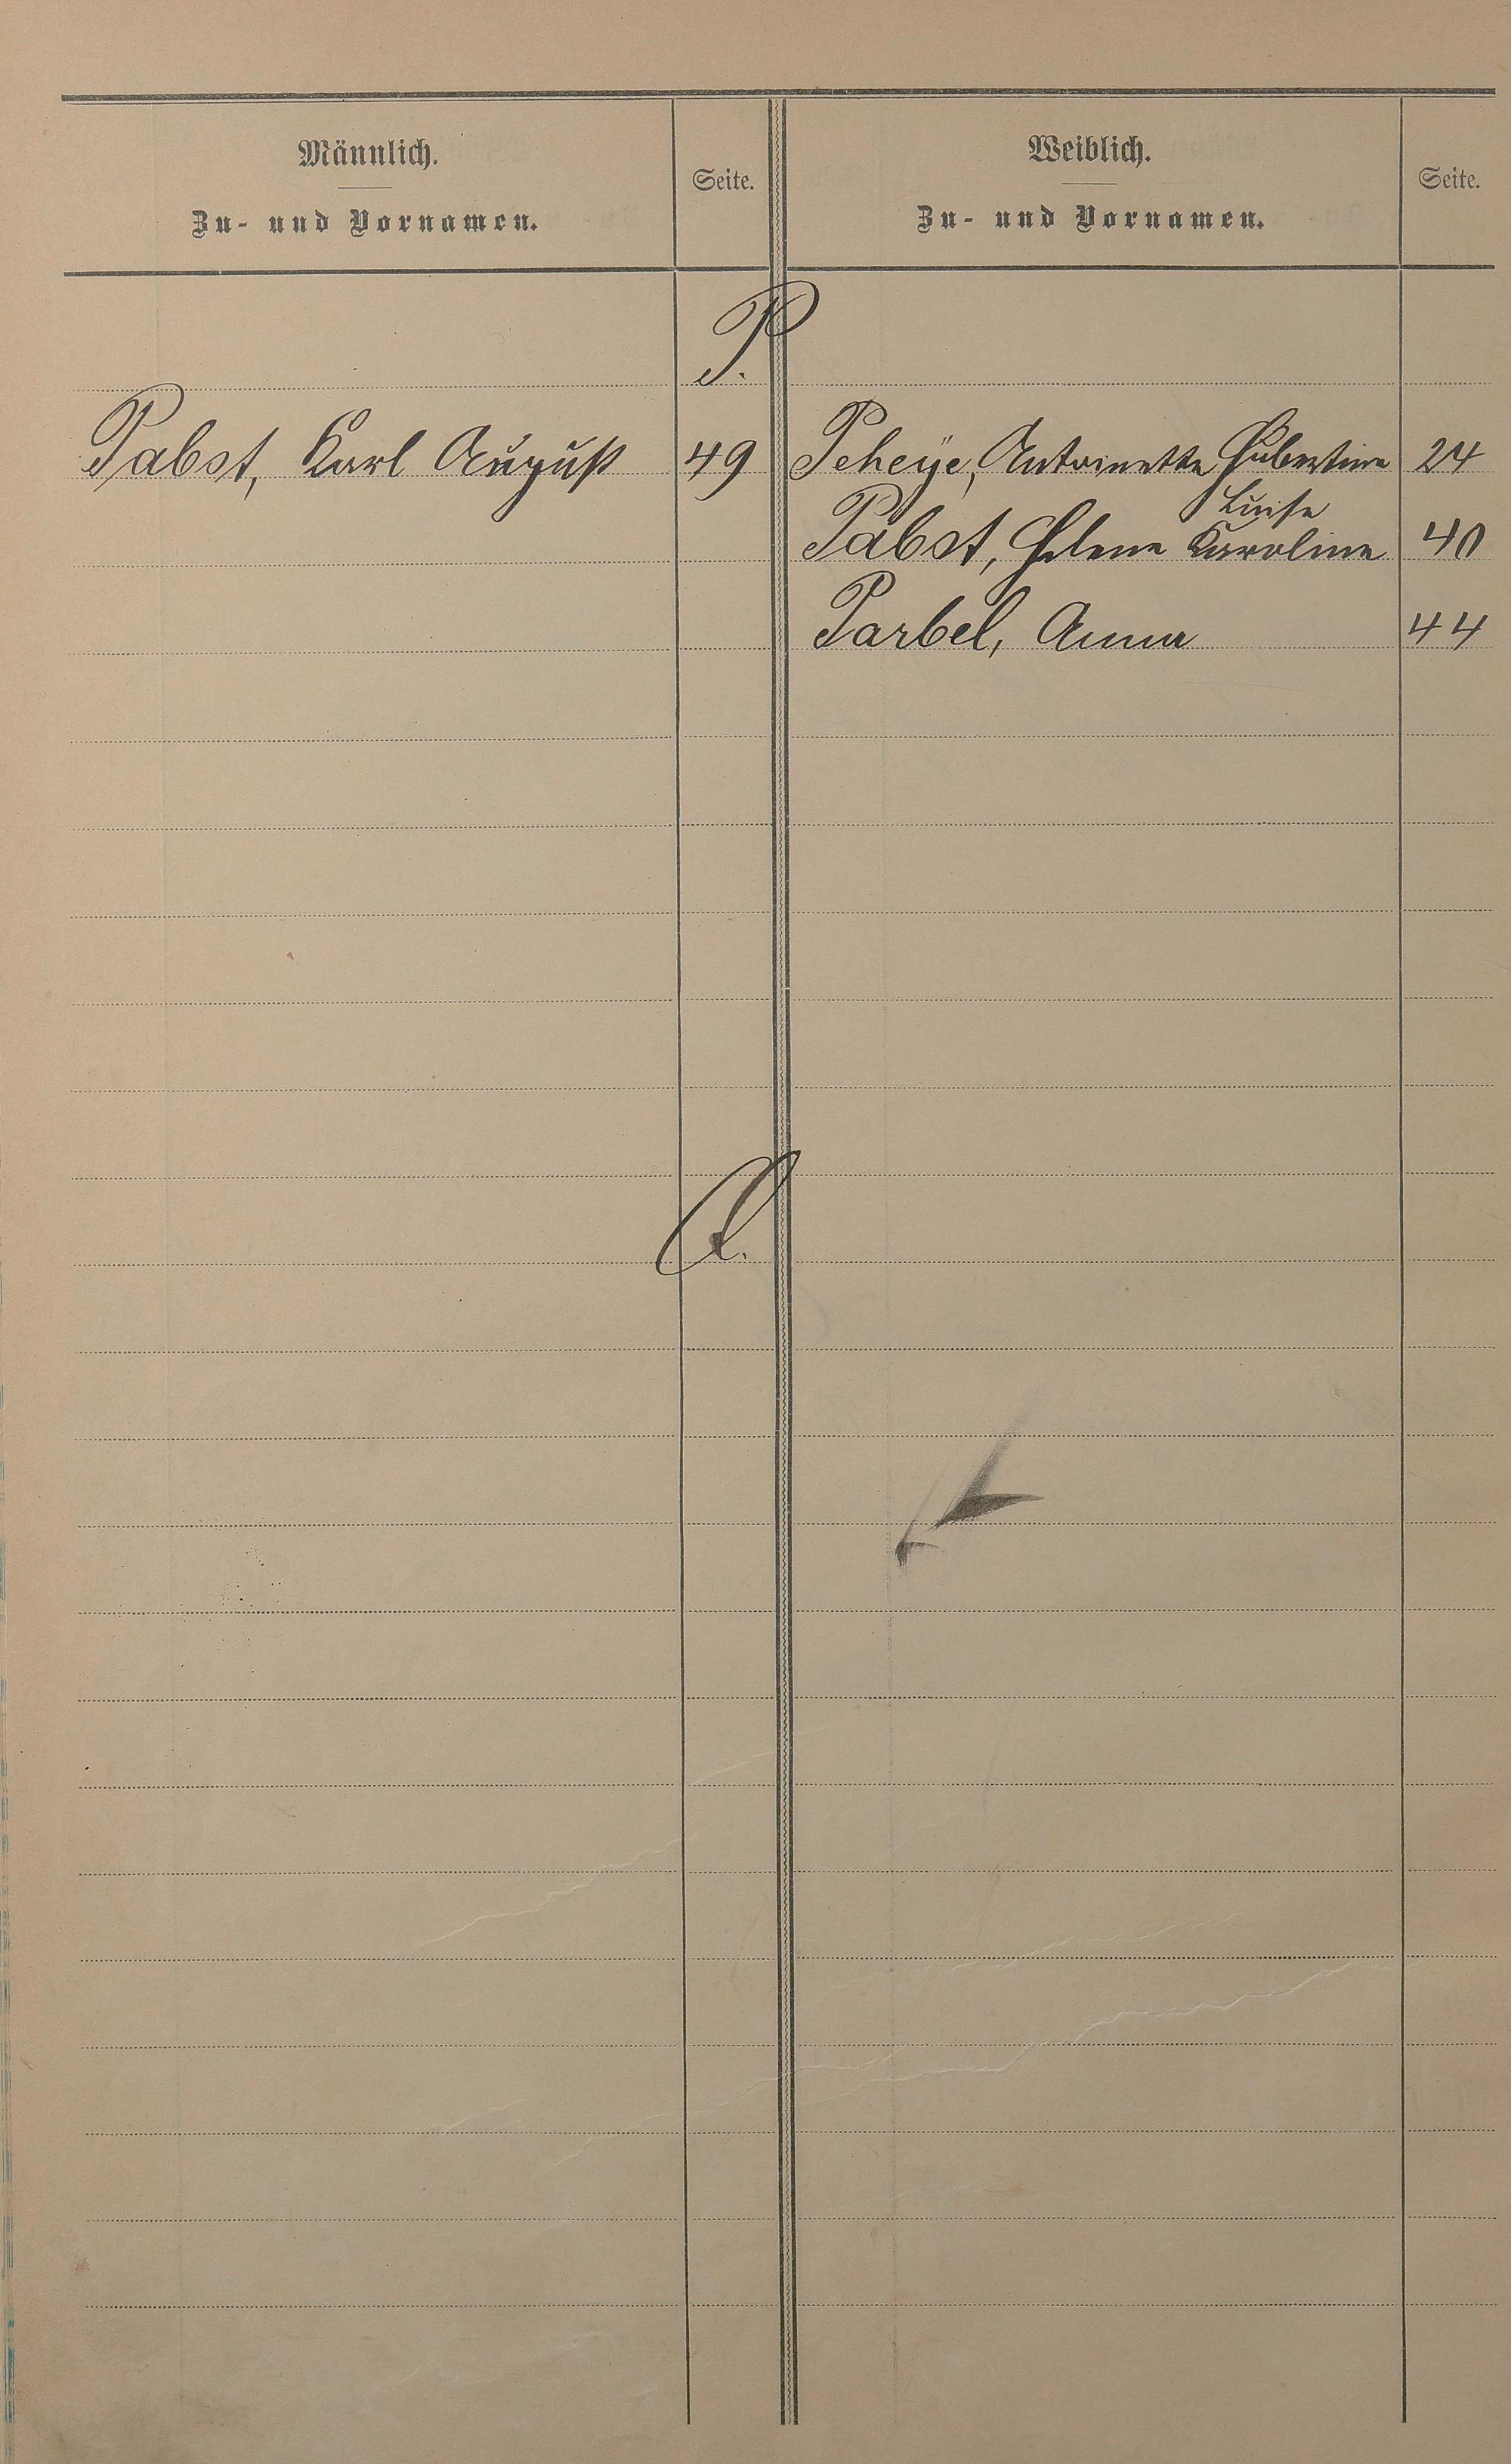 Männlich.
Zu- und Vornamen.
Seite.
Weiblich.
Zu- und Vornamen.
Seite.
P.
Pabst, Karl August 49
Peheÿe, Antoinette Hubertine 24
Luise
Pabst, Helene Karoline 40
Parbel, Anna 44
Q.